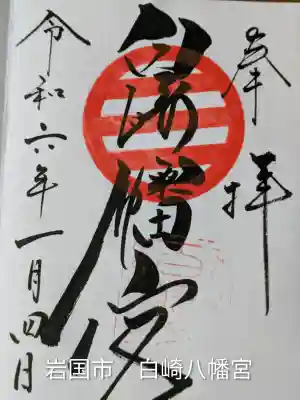 奉拝
白崎八幡宮
令和六年一月四日
岩国市 白崎八幡宮